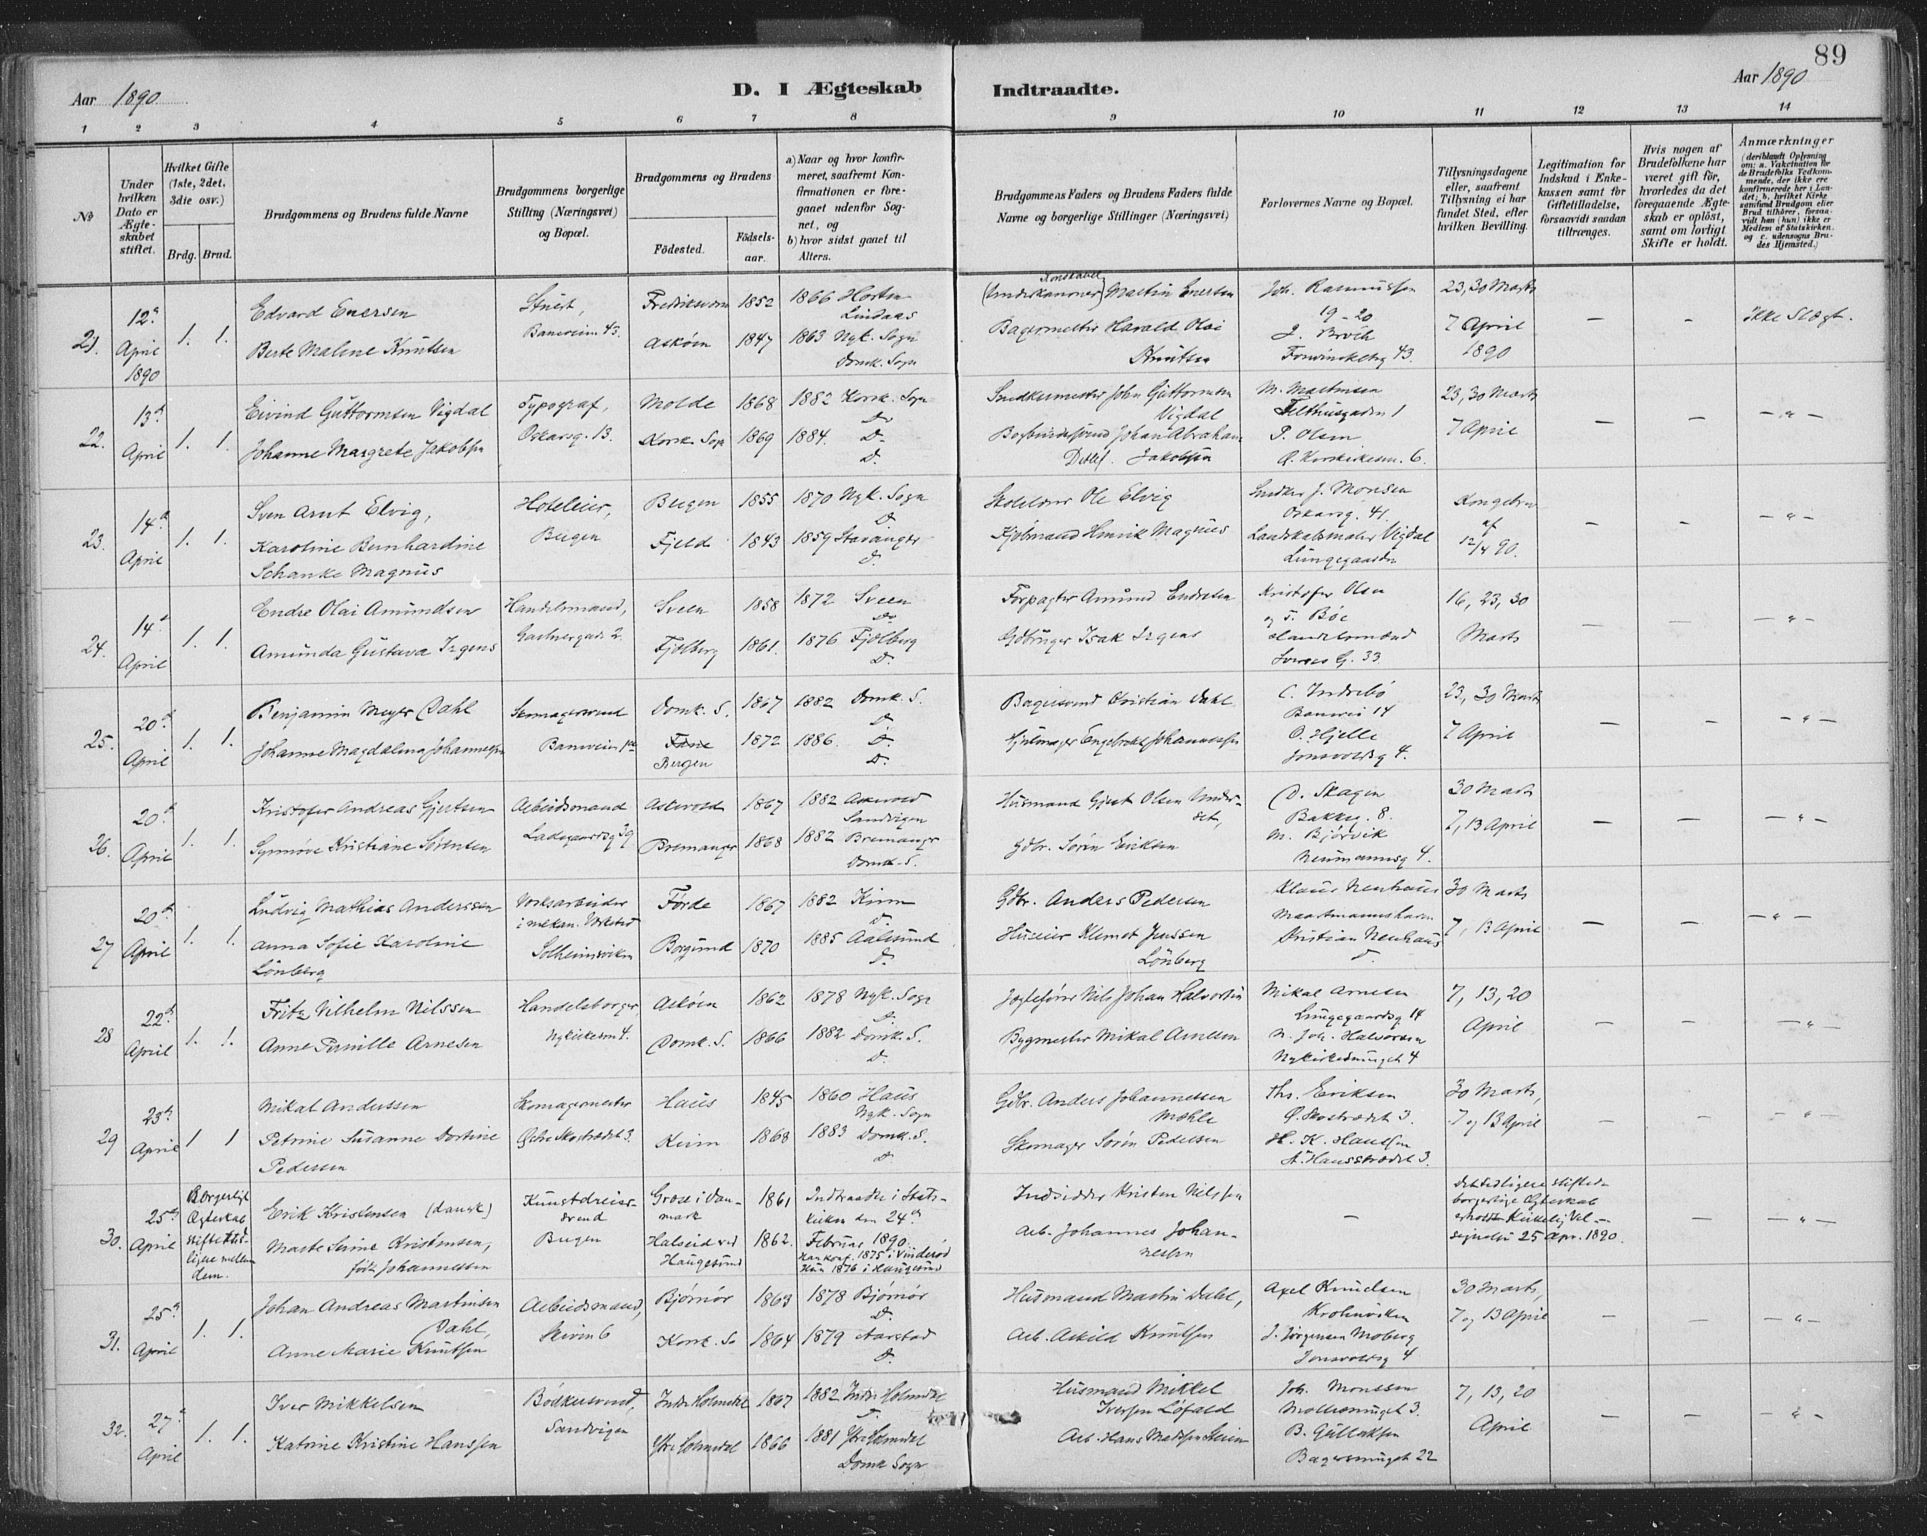 89
Aar 1890
D. I Ægteskab
Indtraadte.
Aar 1890
1 2 3 4 5 6 7 8 9 10 11 12 13 14
№
Under hvilken Dato er Ægteskabet stiftet.
Hvilket Gifte (1ste, 2det, 3die osv.)
Brdg. Brud.
Brudgommens og Brudens fulde Navne
Brudgommens borgerlige Stilling (Næringsvei) og Bopæl.
Brudgommens og Brudens
Födested.
Födselsaar.
a) Naar og hvor konfirmeret, saafremt Konfirmationen er foregaaet udenfor Sognet, og
b) hvor sidst gaaet til Alters.
Brudgommens Faders og Brudens Faders fulde Navne og borgerlige Stillinger (Næringsvei)
Forlovernes Navne og Bopæl.
Tillysningsdagene eller, saafremt Tillysning ei har fundet Sted, efter hvilken Bevilling.
Legitimation for Indskud i Enkekassen samt for Giftetilladelse, forsaavidt saadan tiltrænges.
Hvis nogen af Brudefolkene har været gift før, hvorledes da det foregaaende Ægteskab er oplöst, samt om lovligt Skifte er holdt.
Anmærkninger
(deriblandt Oplysning om: a. Vakcination for de Brudefolks Vedkommende, der ikke ere konfirmerede her i Landet; b. hvilket Kirkesamfund Brudgom eller Brud tilhörer, forsaavidt han (hun) ikke er Medlem af Statskirken. og c. udensogns Brudes Hjemsted.)
21. 12te April 1890 1. 1.
Edvard Enersen
Berte Malene Knutsen
Baneveien 43.
Askøen
1852
1847
1866 Horten
Lindaas
1863 Nyk. Sogn
Domk. Sogn
Martin Enersen
Bagermester Harald Olai
Knutsen
Joh. Rasmussen
19-20
J. Broch
23, 30 Marts
7 April
1890
— — ikke Slægt.
22. 13de April 1. 1.
Eivind Guttormsen Vigdal
Johanne Margrete Jakobsen
Typograf,
Oskarsg. 13.
Molde 1868
Korsk. Sogn 1869
1882 Korsk. Sogn
D.
1884. D.
D.
Snedkermester John Guttormsen
Vigdal
Johan Abraham
Detlef Jakobsen
M. Martinsen
P. Olsen
23, 30 Marts
7 April
— — — " —
23. 14de April 1. 1.
Sven Arnt Elvig,
Karoline Bernhardine
Schanke Magnus
Hoteleier,
Bergen
Bergen 1855
Fjeld 1843
1870 Nyk. Sogn
D.
1859 Stavanger
D.
Skolelærer Ole Elvig
Kjøbmand Henrik Magnus
Snedker J. Monsen
Oskarsg. 41.
Landskabsmaler Vigdal
Lungegaarden
Kongebrev
af
12/4 90.
— — — " —
24. 14de April 1. 1.
Endre Olai Amundsen
Amunda Gustava Irgens
Handelsmand,
Sveen 1858
Fjelberg 1861.
1872 Sveen
D.
1876 Fjelberg
D.
Forpagter Amund Endresen
Gdbruger Isak Irgens
Kristofer Olsen
og T. Bøe
Handelsmænd
Sverres G. 33
16, 23, 30
Marts
— — — " —
25. 20de April 1. 1.
Benjamin Meyer Dahl
Johanne Magdalena Johannessen
Skomagersvend
Domk. S. 1867
Fane
Bergen 1872
1882 Domk. S.
D.
1886. D.
D.
Bagersvend Kristian Dahl
Hjulmager Engebrikt Johannessen
C. Indrebö
Banevei 14
O. Hjelle
Jonsvoldsg 4.
23, 30 Marts
7 April
— — — " —
26. 20de April 1. 1.
Kristofer Andreas Gjertsen
Synnøve Kristiane Sørensen
Arbeidsmand
Ladegaardsg 39
Askevold 1867
Bremanger 1868
1882 Askevold
Sandvigen
1882 Bremanger
Domk. S.
Husmand Gjert Olsen
Gdbr. Søren Eriksen
D. Skagen
Bakkeg. 8.
M. Bjørvik
Neumannsg 4.
30 Marts
7, 13 April
— — — " —
27 20de April 1. 1.
Ludvig Mathias Anderssen
Anna Sofie Karoline
Lönberg
Verksarbeider
i mekan. Verksted
Solheimsviken
Førde 1867
Borgund 1870
1882 Kinn
D.
1885 Aalesund
D.
Gdbr. Anders Pedersen
Huseier Klemet Jenssen
Lönberg
Klaus Neuhaus
Kristian Neuhaus
D.
30 Marts
7, 13 April
— — — " —
28 22de April 1. 1.
Fritz Vilhelm Nilssen
Anne Pernille Arnesen
Handelsborger
Askøen 1862
Domk. S. 1866
1878 Nyk. Sogn
D.
1882 Domk. S.
D.
Jægtefører Nils Johan Halvorsen
Bygmester Mikal Arnesen
Mikal Arnesen
Lungegaardsg 14
N. Joh. Halvorsen
Nykirkesmuget 4
7, 13, 20
April
— — — " —
29 23de April 1 1
Mikal Anderssen
Petrine Susanne Dortine
Pedersen
Skomagermester
Øvre Skostrædet 3.
Haus 1845
1868
1860 Haus
Nyk. Sogn
1883 Domk. S.
D.
Gdbr. Anders Johannessen
Mæhle
Skomager Søren Pedersen
Ths. Eriksen
Ø. Skostrædet 3.
30 Marts,
7 og 13 April
— — — " —
30. 25de April
Borgerligt
Ægteskab
stiftet tidligere mellem
dem.
Erik Kristensen (dansk)
Marte Serine Kristensen,
født Johannessen
Kunstdreiersvend
Bergen
i Danmark 1861
Halseid ved
Haugesund 1862.
Indtraadte i Statskirken den 24de
Februar 1890.
Han konf. 1875 i Vinderød
Hun 1876 i Haugesund
Indsidder Kristen Nilssen
Arb. Johannes Johannessen
—
Det tidligere stiftede
borgerlige Ægteskab
Kirkelig Velsignelse 25 Apr. 1890.
— — " —
31. 25de April 1. 1.
Johan Andreas Martinsen
Dahl,
Anne Marie Knutsen
Arbeidsmand,
Skiven 6
Bjørnør 1863
Korsk. So 1864
1878 Bjørnør
D.
1879 Aarstad
D.
Husmand Martin Dahl,
Arb. Askild Knutsen
Axel Knudsen
Krohnviken
J. Jørgensen Moberg
Jonsvoldsg 4
30 Marts,
7 og 13 April
— — — " —
32. 27de April 1. 1.
Iver Mikkelsen
Katrine Kristine Hanssen
Bödkersvend,
Sandvigen
Indre Holmedal 1867
Ytre Holmedal 1866
1882 Indre Holmedal
D.
1881 Ytre Holmedal
Domk Sogn
Husmand Mikkel
Iversen Løfald
Arb. Hans Madsen
Joh. Monssen
3.
B. Gullaksen
Bagersmuget 22
7, 13, 20
April
— — — " —